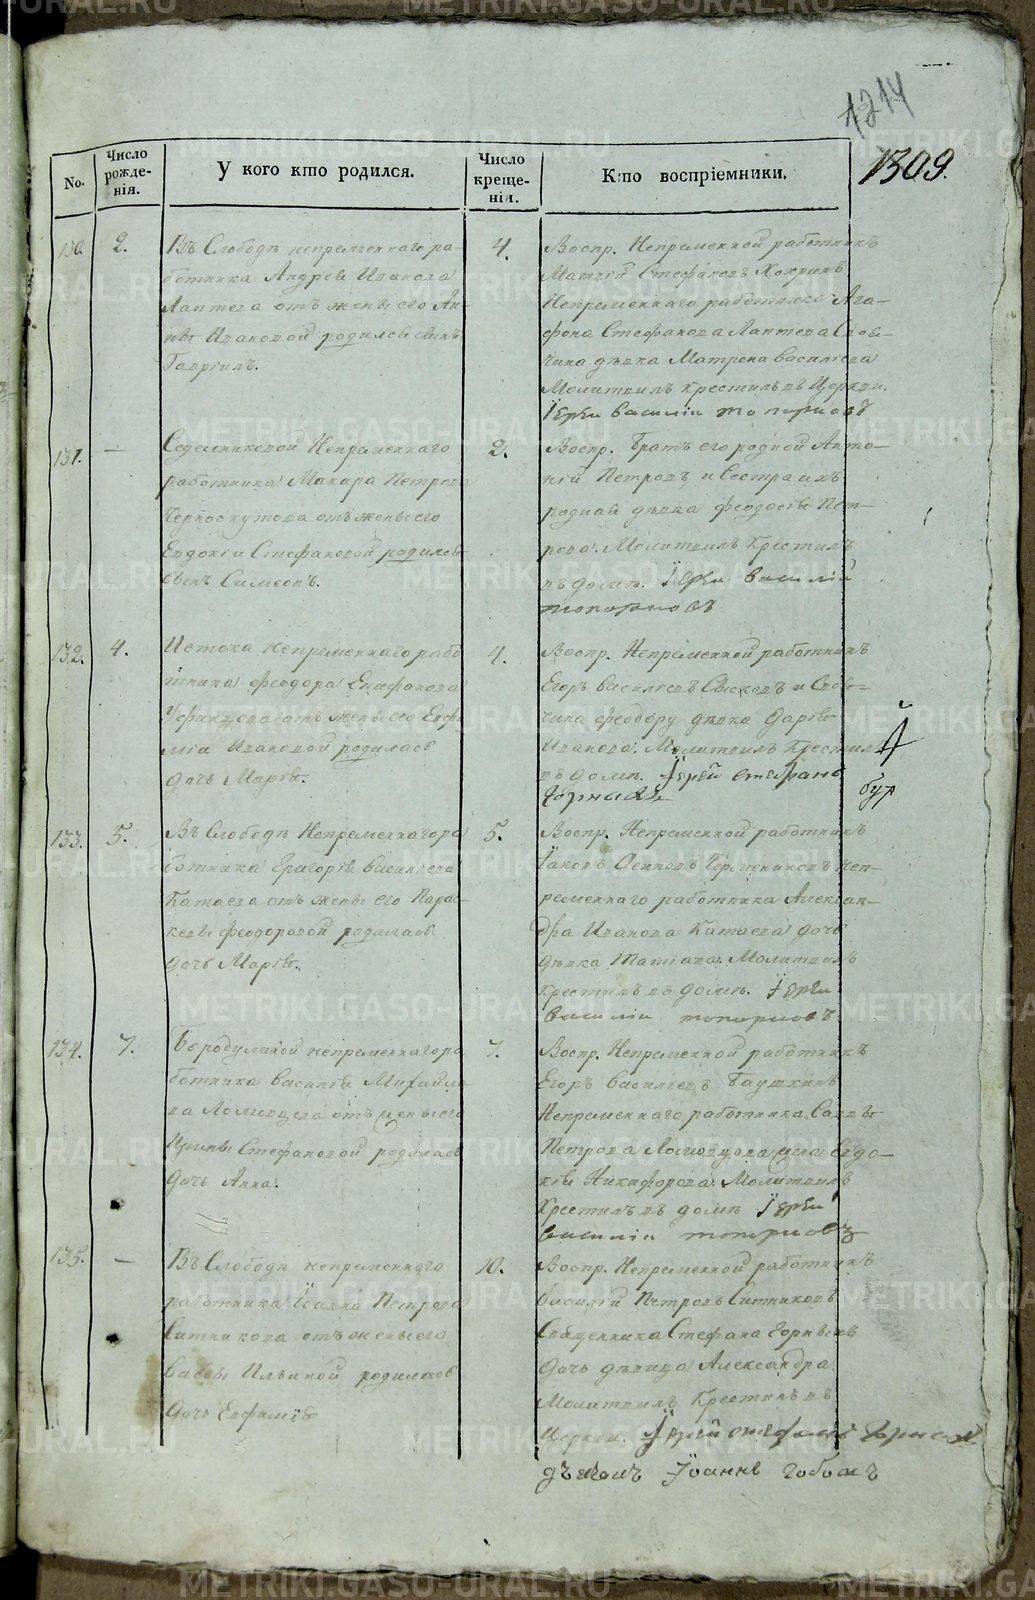 1214
1309.
No.
Число рожде-нія.
У кого кто родился.
Число креще-нія.
Кто воспріемники.
130.
2.
Въ Слободѣ непременнаго ра-
ботника Андрея Иванова
Лаптева отъ жены его Ан-
ны Ивановой родился сынъ
Гавріилъ.
4.
Воспр. Непременной работникъ
Матвей Стефановъ Хохринъ
Непременнаго работника Ага-
фона Стефанова Лаптева
дѣвка Матрена Василіева
Молитвилъ крестилъ въ Церкви.
Іерей Василій Топорковъ
131.
—
Непременнаго
работника Макара Петрова
отъ жены его
Евдокіи Стефановой родился
сынъ Симеонъ.
2.
Воспр. Братъ его родной Анто-
ній Петровъ и Сестра ихъ
родная дѣвка Феодосія Пет-
рова. Молитвилъ Крестилъ
въ домѣ. Іерей Василій
Топорковъ
132.
4.
Истока непременнаго рабо
тника Феодора Епифанова
отъ жены его Евфи
міи Ивановой родилась
дочь Марія.
4.
Воспр. Непременной работникъ
Егоръ Василіевъ и
Феодору дѣвка Дарія
Иванова. Молитвилъ Крестил
въ домѣ. Іерей Стефанъ
Горныхъ
133.
5.
Въ Слободѣ Непременнаго ра
ботника Григорія Василіева
Катаева отъ жены его Парас-
кевы Феодоровой родилась
дочь Марія.
5.
Воспр. Непременной работникъ
Іаковъ Осиповъ Неп-
ременнаго работника Алексан-
дра Иванова Катаева дочь
дѣвка Татіана. Молитвилъ
крестилъ въ домѣ. Іерей
Василій Топорковъ
134.
7.
Бородулиной непременнаго ра
ботника Василія Михайло
ва отъ жены его
Ирины Стефановой родилась
дочь Анна.
7.
Воспр. Непременной работникъ
Егоръ Василіевъ Баушкинъ
Непременнаго работника Саввы
Петрова жена Евдо-
кія Никифорова. Молитвилъ
Крестилъ въ домѣ Іерей
Василій Топорковъ
135.
—
Въ Слободѣ непременнаго
работника Іоанна Петрова
Ситникова отъ жены его
Васы Ильиной родилась
дочь Евфимія
10.
Воспр. Непременной работникъ
Василій Петровъ Ситниковъ
Священника Стефана Горныхъ
дочь дѣвица Александра
Молитвилъ Крестилъ въ
Церкви. Іерей Стефанъ Горныхъ
Іоаннъ
METRIKI.GASO-URAL.RU